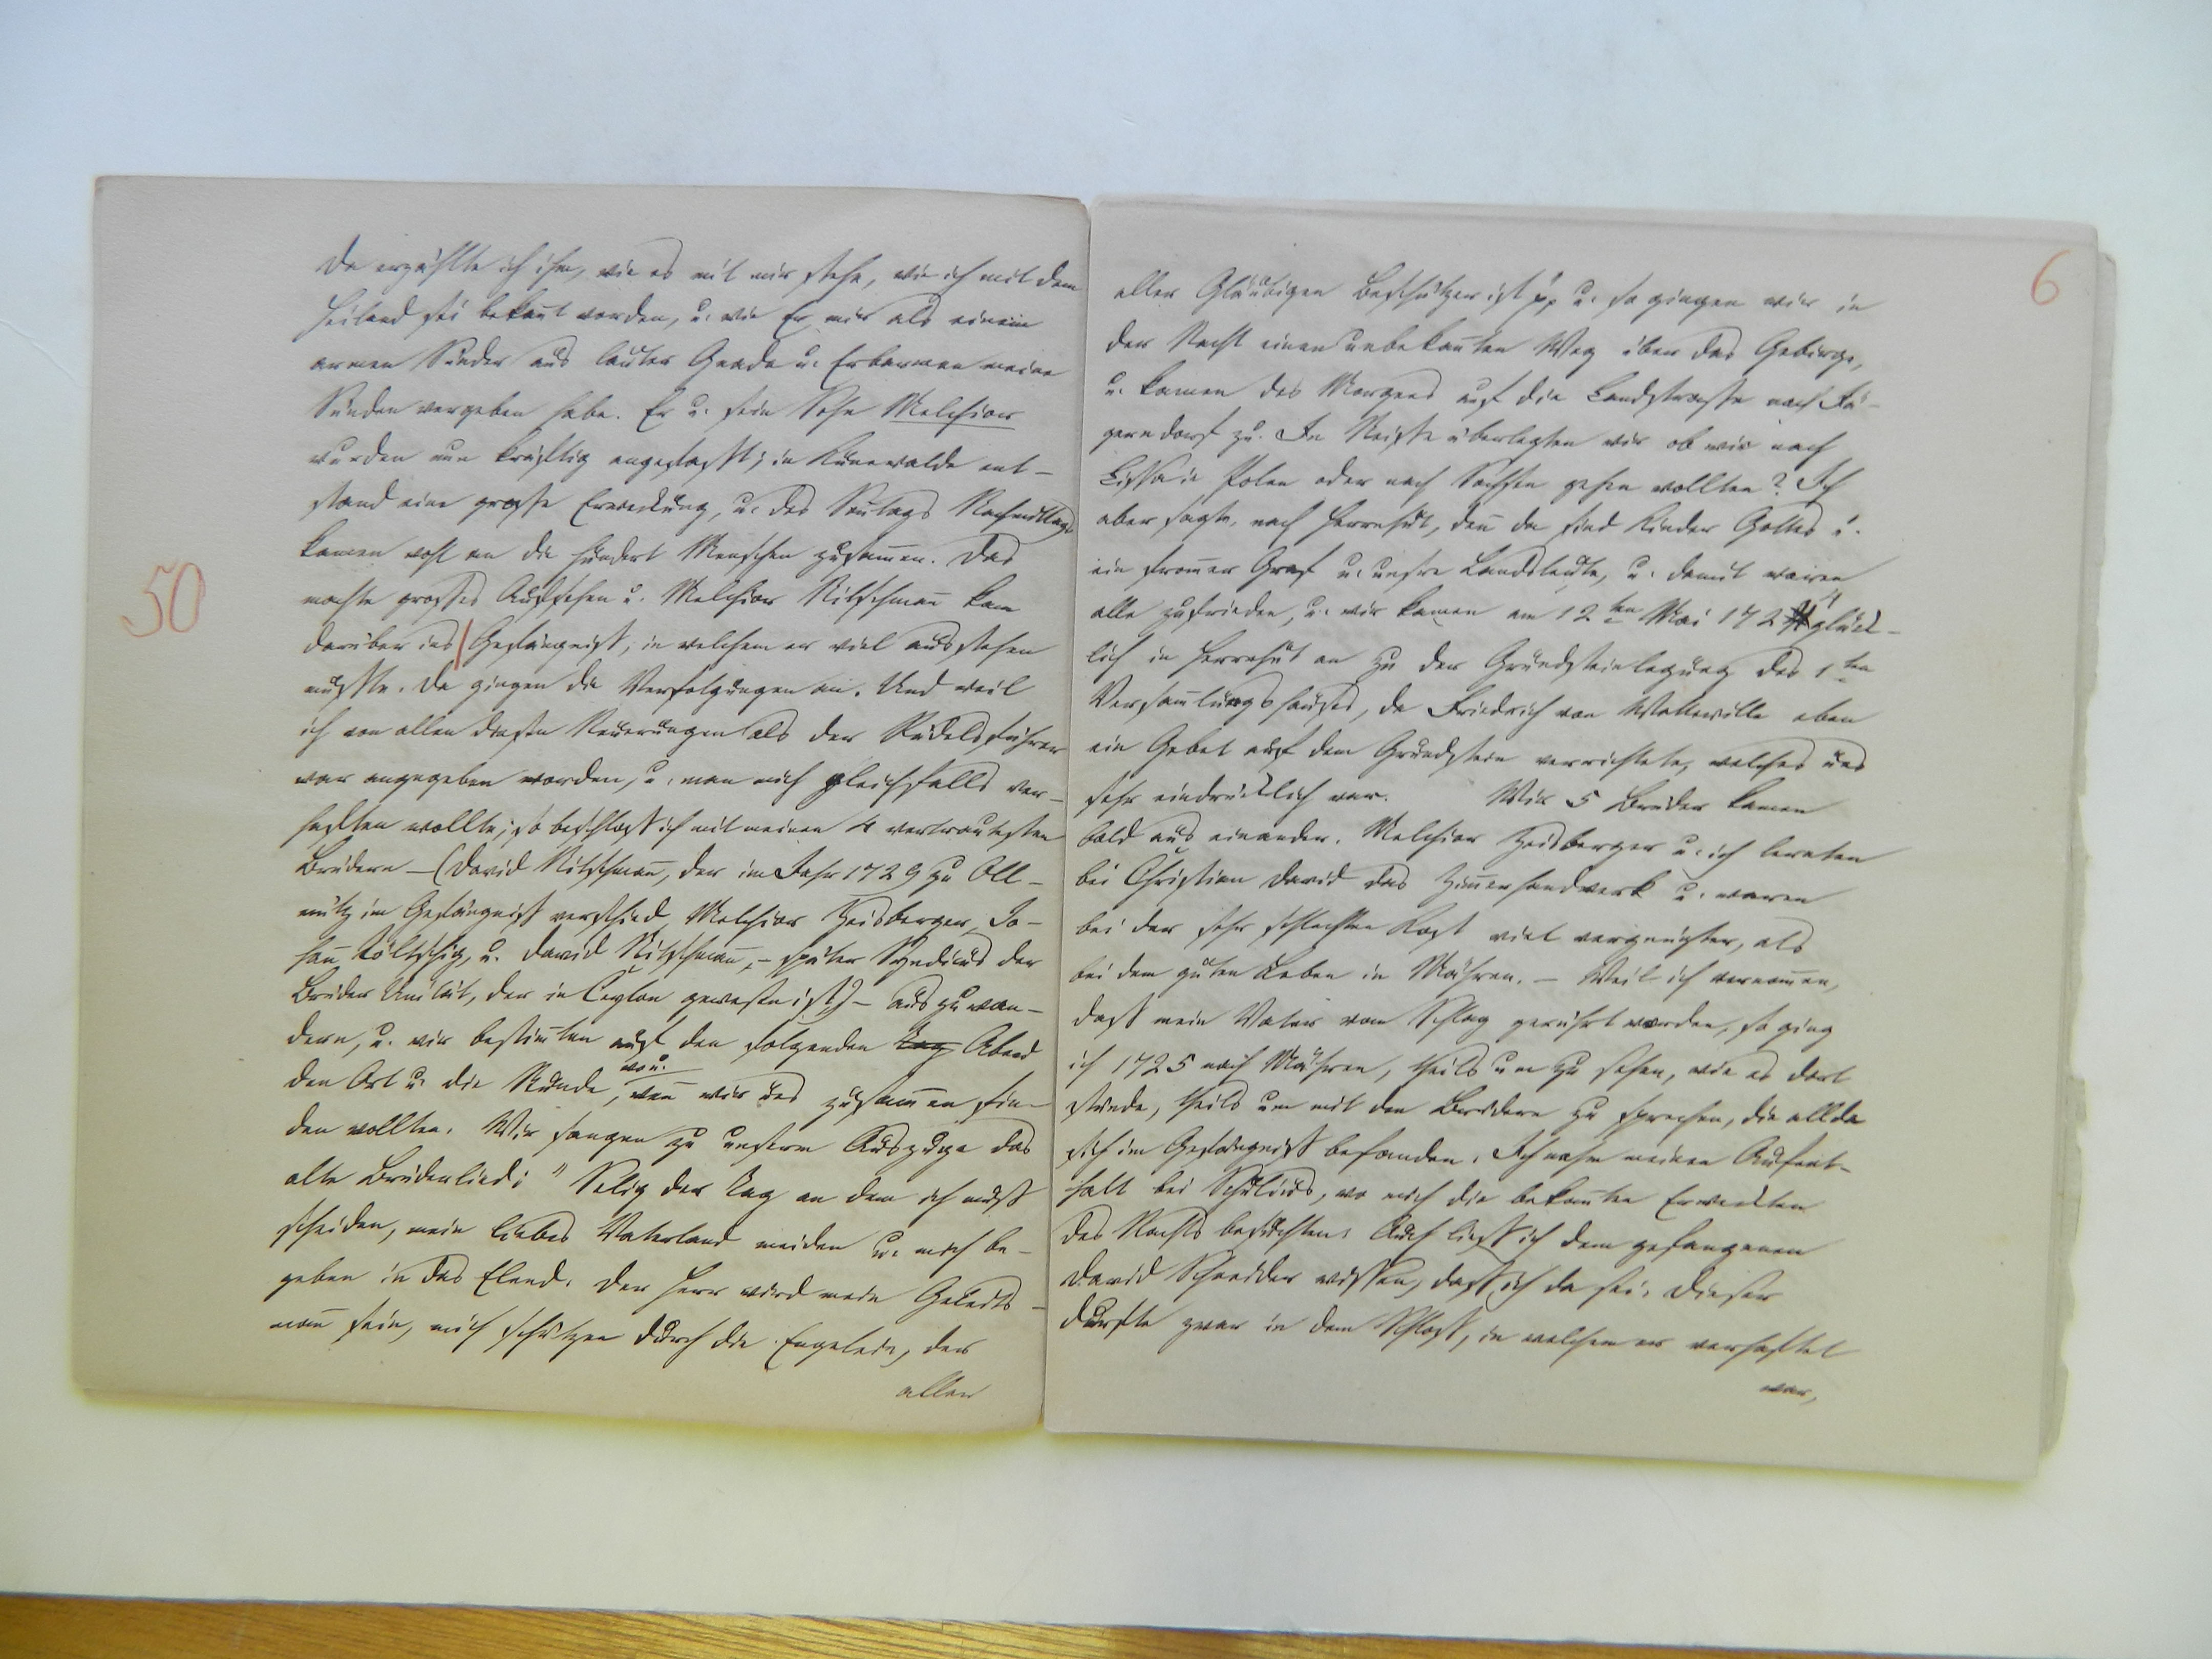 da erzählte ich ihm, wie es mit mir stehe, wie ich mit dem
Heiland sei bekan̅t worden, u. wie Er mir als einem
armen Sünder aus lauter Gnade u. Erbarmen meine
Sünden vergeben habe. Er u. sein Sohn Melchior
wurden nun kräftig angefasst; in Kunewalde ent-
stand eine grosse Erweckung, u. des Son̅tags Nachmittags
kamen wohl an die hundert Menschen zusam̅en. Das
machte grosses Aufsehen u. Melchior Nitschman̅ kam
50
darüber ins Gefängniss, in welchem er viel ausstehen
musste. Da gingen die Verfolgungen an. Und weil
ich von allen diesen Neuerungen als der Rädelsführer
war angegeben worden, u. man mich gleichfalls ver-
haften wollte; so beschloss ich mit meinen 4 vertrautesten
Brüdern – (David Nitschman̅, der im Jahr 1729 zu Oll-
mütz im Gefängniss verschied, Melchior Zeisberger, Jo-
han̅ Töltschig, u. David Nitschman̅, – später Syndicus der
Brüder Unität, der in Ceylon gewesen ist) – auszuwan-
dern, u. wir bestim̅ten auf den folgenden Tag Abend
den Ort u. die Stunde, wo u. wen̅ wir uns zusam̅en fin-
den wollten. Wir sangen zu unserm Auszuge das
alte Brüderlied: "Selig der Tag an dem ich muss
scheiden, mein liebes Vaterland meiden u. mich be-
geben in das Elend. Der Herr wird mein Geleits-
man̅ sein, mich schützen durch die Engelein, der
aller
6
aller Gläubigen Beschützer ist pp u. so gingen wir in
der Nacht einen unbekan̅ten Weg über das Gebirge,
u. kamen des Morgens auf die Landstrasse nach Jä-
gerndorf zu. In Neisse überlegten wir ob wir nach
Lissa in Polen oder nach Sachsen gehen wollten? Ich
aber sagte, nach Herrnhut, den̅ da sind Kinder Gottes u.
ein from̅er Graf u. unsre Landsleute, u. damit waren
alle zufrieden, u. wir kamen am 12ten Mai 1724 glück-
lich in Herrnhut an zu der Grundsteinlegung des 1ten
Versam̅lungshauses, da Friedrich von Watewille eben
ein Gebet auf dem Grundstein verrichtete, welches uns
sehr eindrücklich war. Wir 5 Brüder kamen
bald aus einander. Melchior Zeisberger u. ich lernten
bei Christian David das Zim̅erhandwerk u. waren
bei der sehr schlechten Kost viel vergnügter, als
bei dem guten Leben in Mähren. – Weil ich vernom̅en,
dass mein Vater vom Schlag gerührt worden, so ging
ich 1725 nach Mähren, theils um zu sehen, wie es dort
stünde, theils um mit den Brüdern zu sprechen, die allda
sich im Gefängniss befanden. Ich nahm meinen Aufent-
halt bei Schulius, wo mich die bekan̅ten Erweckten
des Nachts besuchten. Auch liess ich dem gefangenen
David Schneider wissen, dass ich da sei. Dieser
durfte zwar in dem Schloss, in welchem er verhaftet
war,